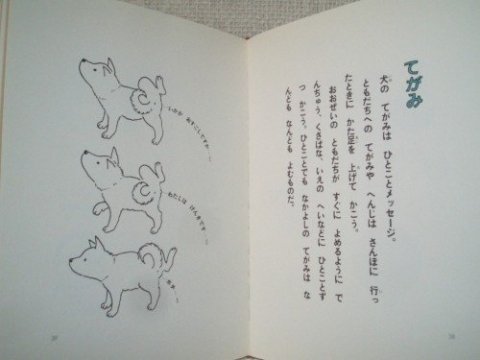 てがみ
犬の てがみは ひとことメッセージ。
ともだちへの てがみや へんじは さんぽに 行っ
たときに かた足を 上げて かこう。
おおぜいの ともだちが すぐに よめるように で
んちゅう、くさばな、いえの へいなどに ひとことず
つ かこう。ひとことでも なかよしの てがみは な
んども なんども よむものだ。
いかが おすごしですか……
わたしは げんきです……